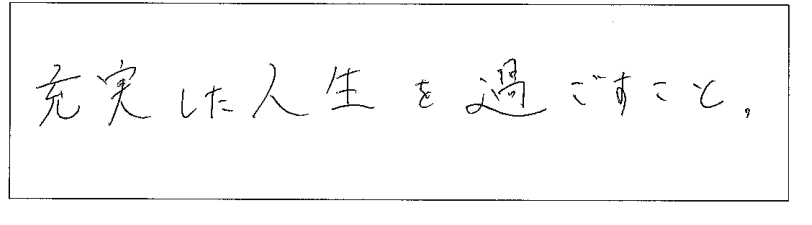 充実した人生を過ごすこと,